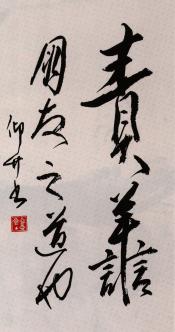 責譱
朋友之道也
仰書